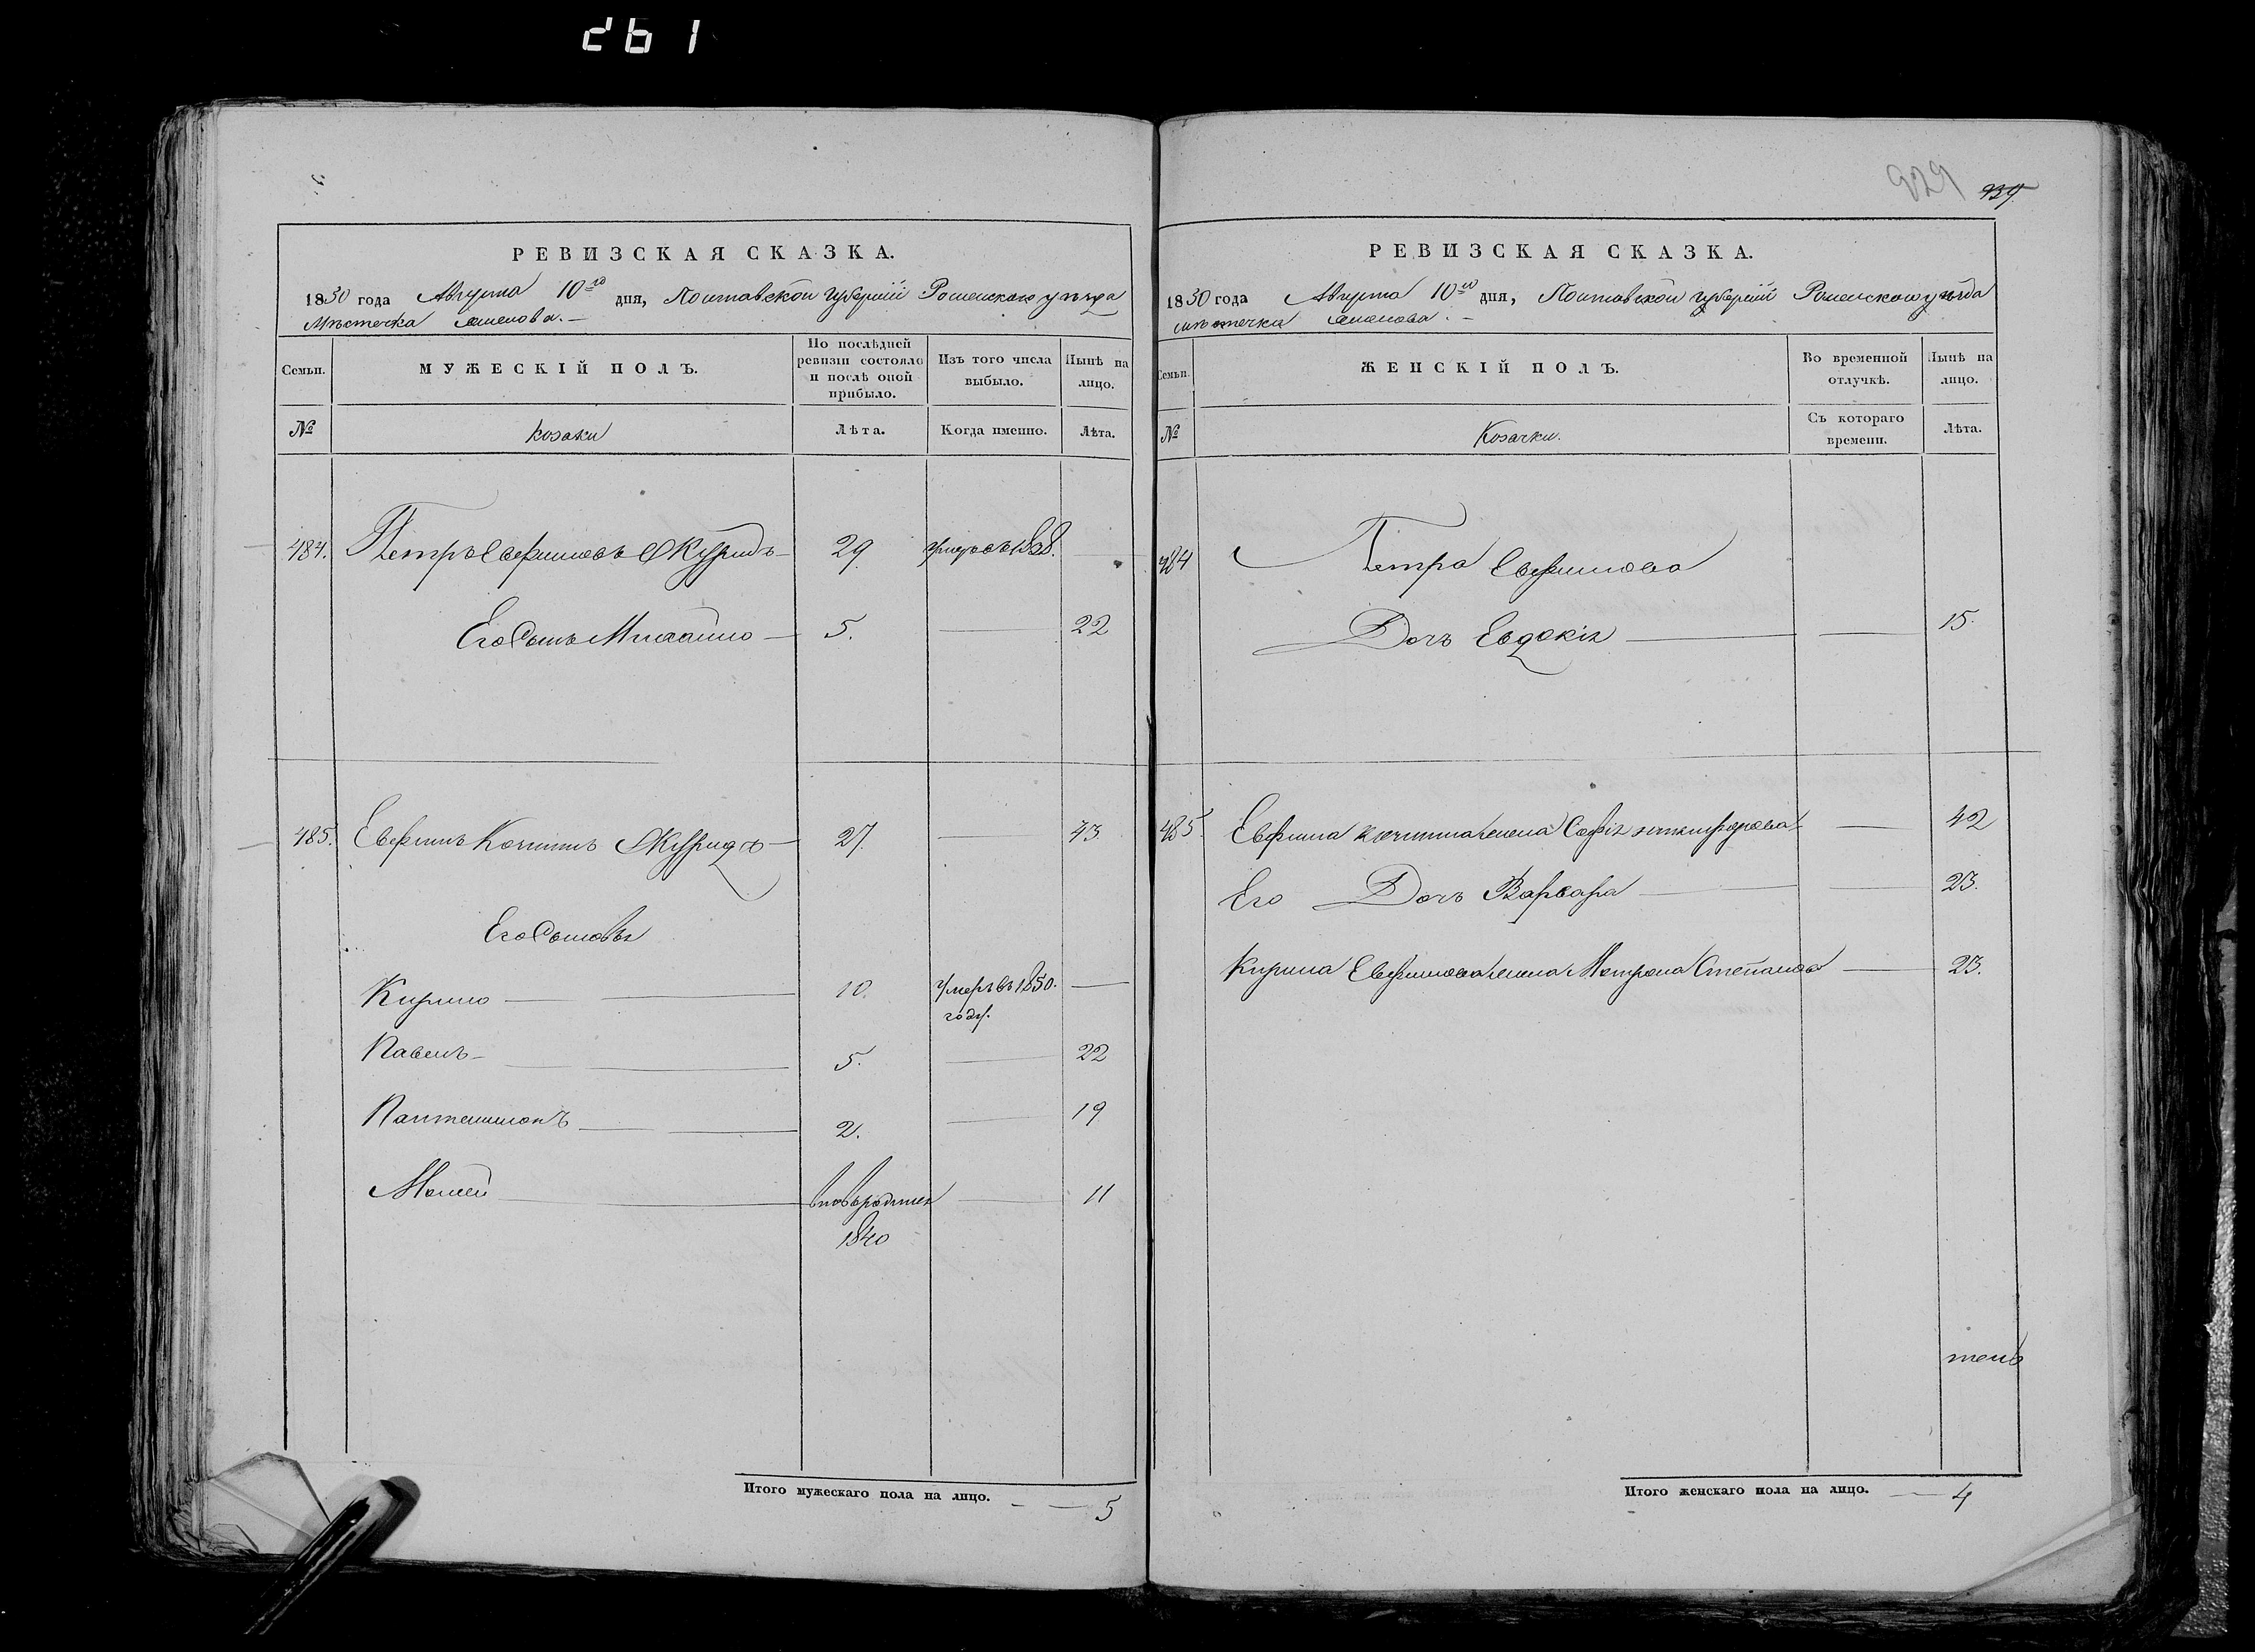 261
РЕВИЗСКАЯ СКАЗКА.
1850 года Августа 10го дня, Полтавской губерніи Роменскаго уѣзда
Мѣстечка Смелова. —
Семьи.
МУЖЕСКІЙ ПОЛЪ.
По послѣдней ревизіи состояло и послѣ оной прибыло.
Изъ того числа выбыло.
Нынѣ на лицо.
№
Козаки
Лѣта.
Когда именно.
Лѣта.
484. Петръ Евфимовъ 29 1828.
Его Сынъ Михайло — 5. 22
485. Евфимъ 27. 43
Его Сыновья
Кирило 10. умеръ въ 1850. году.
Павелъ 5. 22
Пантелимонъ 2. 19
Мосей вновь родился 1840 11
Итого мужескаго пола на лицо. — 5
929 939
РЕВИЗСКАЯ СКАЗКА.
1850 года Августа 10го дня, Полтавской губерніи Роменскаго уѣзда
мѣстечка Смелова. —
Семьи.
ЖЕНСКІЙ ПОЛЪ.
Во временной отлучкѣ.
Нынѣ на лицо.
№
Козачки.
Съ котораго времени.
Лѣта.
484 Петра Евфимова
Дочь Евдокія 15.
485. Евфима жена Софія Никифорова 42
Его Дочь Варвара 23.
Кирила Евфимова жена Мотрона Степанова 23.
Итого женскаго пола на лицо. — 4